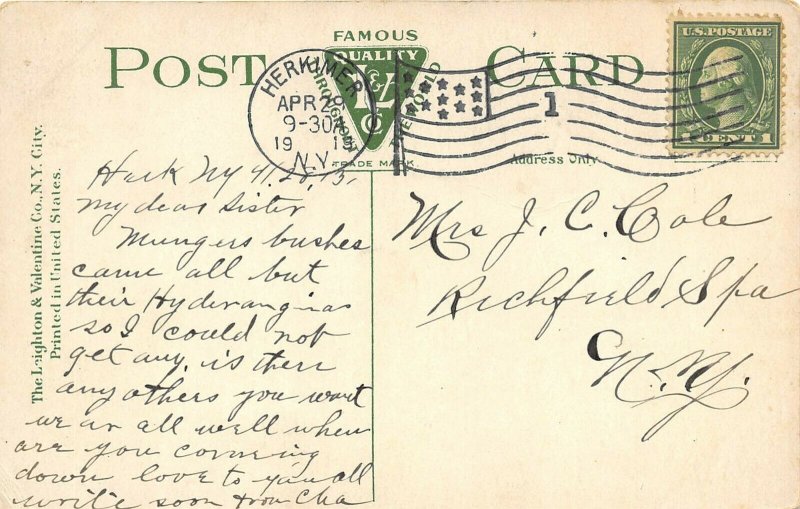 FAMOUS
POST CARD
QUALITY
THROUGHOUT
THE WORLD
V&L
Co
TRADE MARK.
HERKIMER
APR 29
9-30A
19 13
N.Y.
1
U.S. POSTAGE
1 CENT 1
Address Only
The Leighton & Valentine Co., N.Y. City.
Printed in United States.
Herk NY 4/28, 13,
My dear Sister
Mungers bushes
came all but
their Hyderanginas
so I could not
get any. is there
any others you want
we ar all well when
are you comeing
down love to you all
write soon from Cha
Mrs J. C. Cole
Richfield Spa
N.Y.